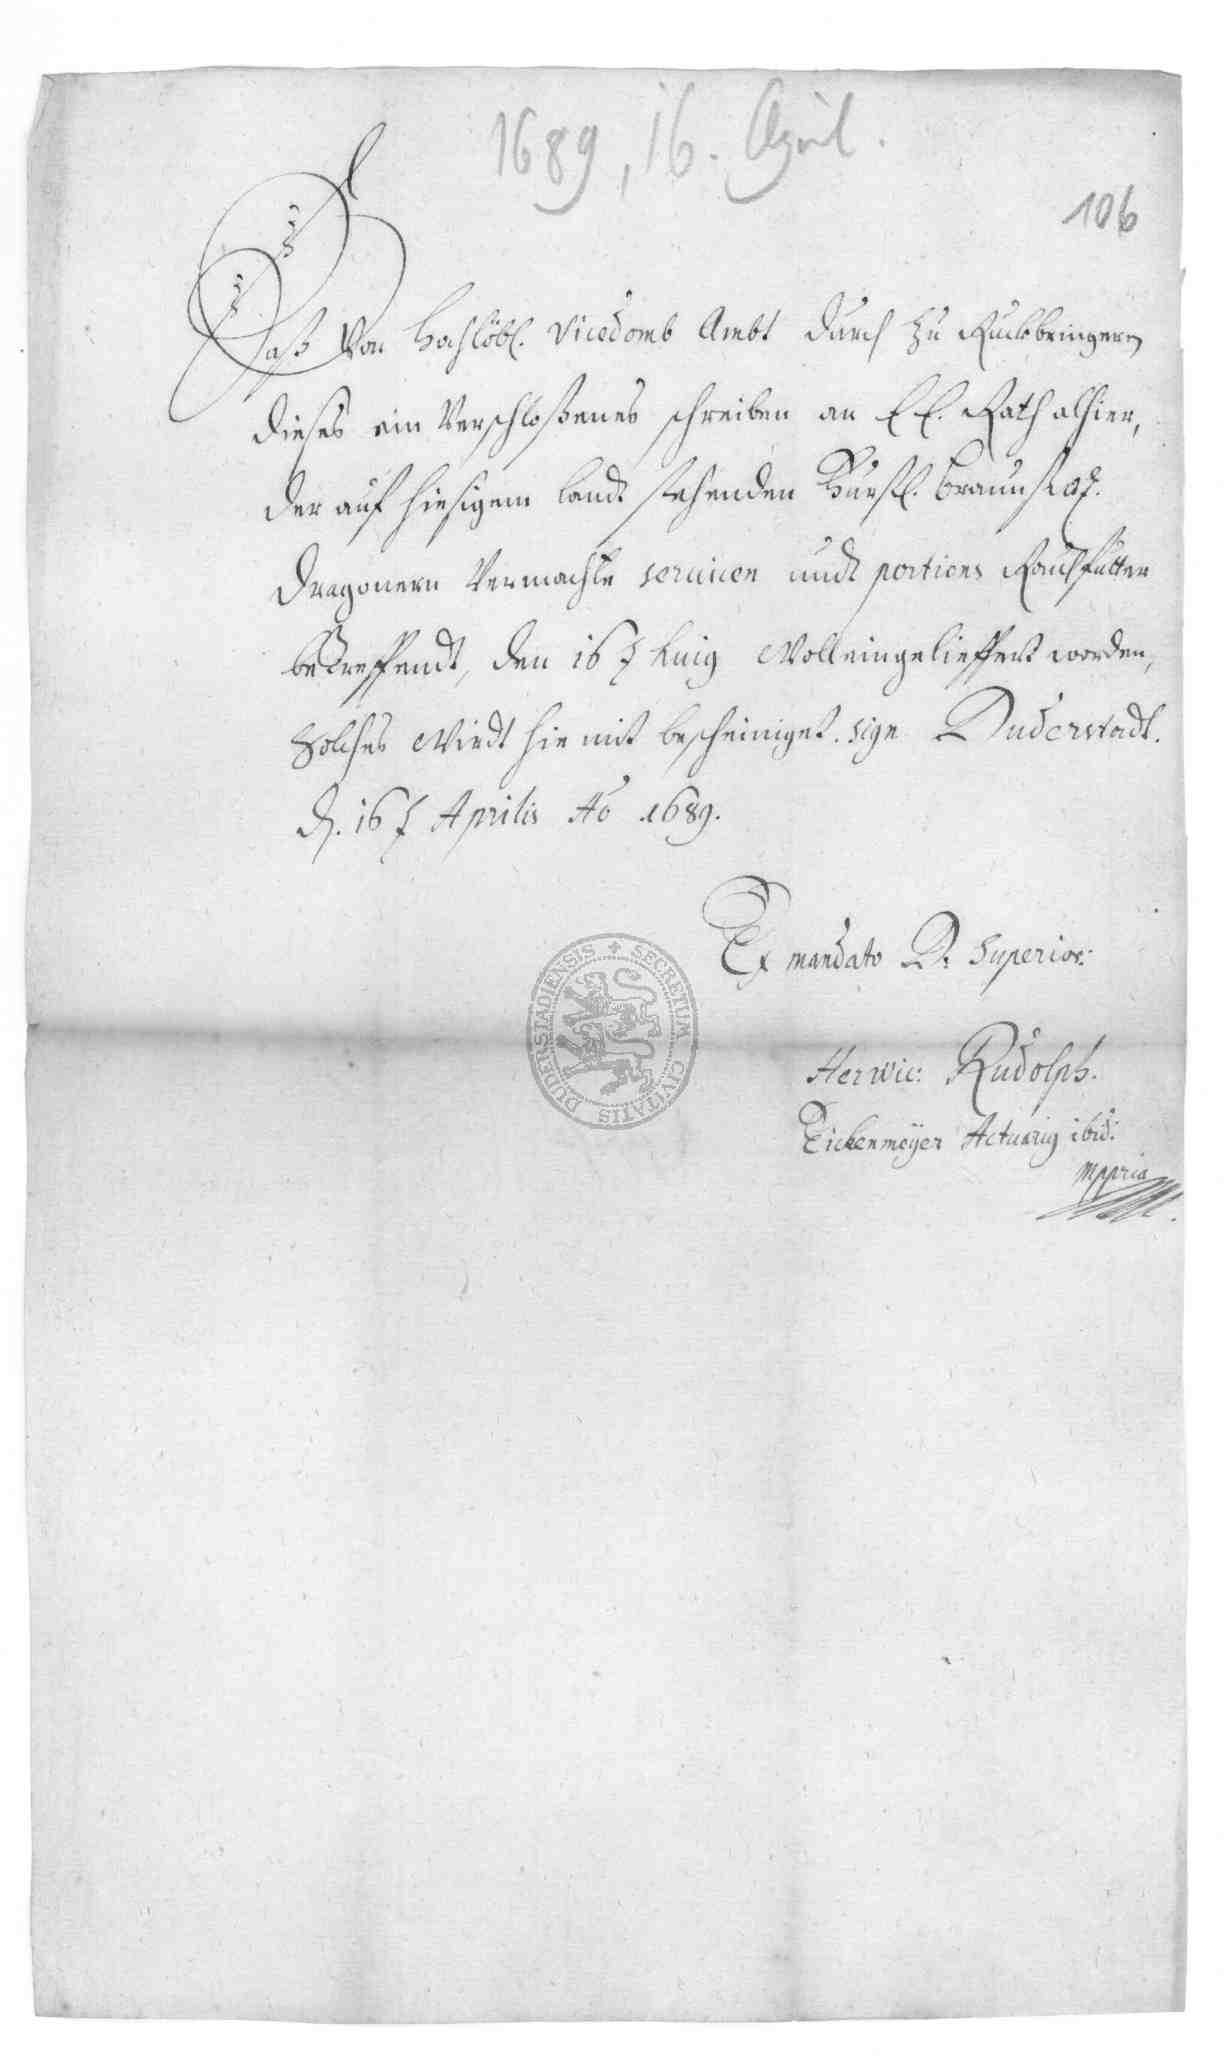 1689, 16. April.
106
Daß Von hochlöbl. Vicedomb Ambt durch zu Ruckbringern
dieses ein Verschloßenes schreiben an E E. Rath alhier,
der auf hiesigem landt stehenden Fürstl. Braunschw.
dragonern Vermachte servicen undt portions Rauchfutter
betreffendt, den 16 huig Woll eingelieffert worden,
Solches Wirdt hie mit bescheiniget. sign Duderstadt.
d. 16 Aprilis Ao 1689.
Ex mandato D. Superior:
Herwic: Rudolph.
Eickenmeÿer Actuarig ibid:
mppria
SECRETUM CIVITATIS DUDERSTADIENSIS